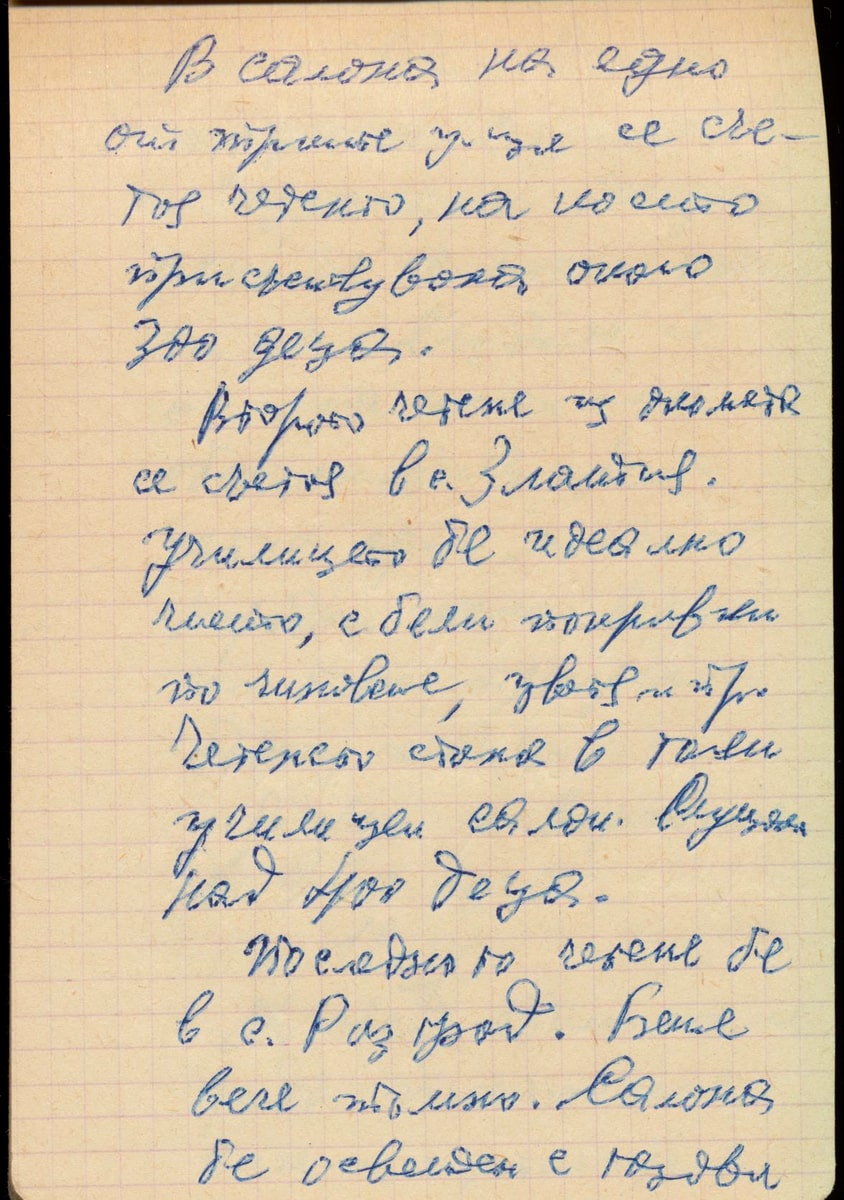 В салона на едно
от трите у-ща се със-
тоя четенето, на коет��
присъствуваха около
300 деца.
Второто четене из околията
се състоя в с. Златия.
Училището бе идеално
чисто, с бели покривки
по чиновете, цветя и пр.
Четенето стана в голям
училищен салон. Слушаха
над 400 деца.
Последното четене бе
в с. Разград. Беше
вече тъмно. Салона
бе осветен с газови